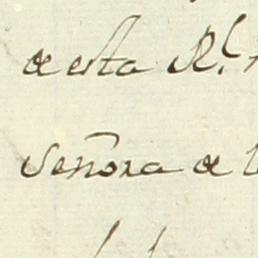 de esta Rl.
Señora de